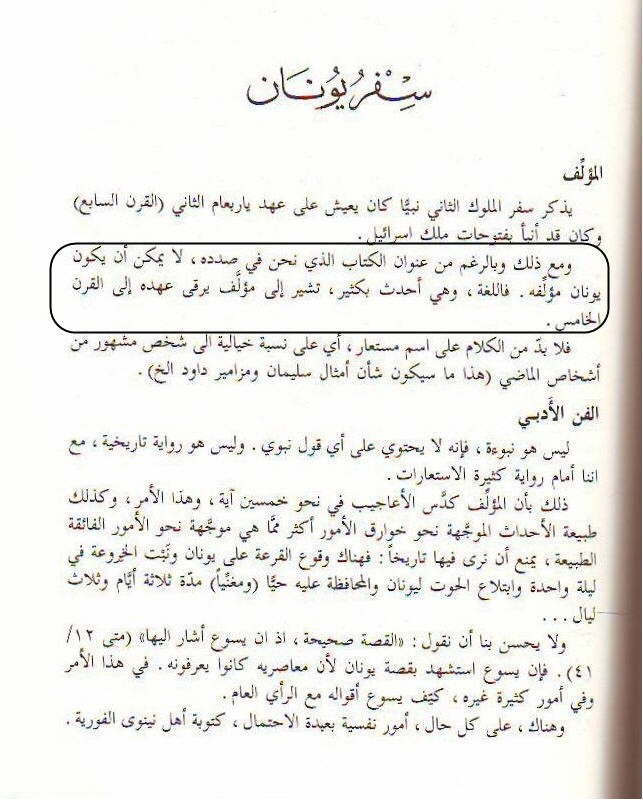 سِفْرُ يُونَان
المؤلِّف
يذكر سفر الملوك الثاني نبيًّا كان يعيش على عهد ياربعام الثاني (القرن السابع)
وكان قد أنبأ بفتوحات ملك اسرائيل.
ومع ذلك وبالرغم من عنوان الكتاب الذي نحن في صدده، لا يمكن أن يكون
يونان مؤلِّفه. فاللغة، وهي أحدث بكثير، تشير إلى مؤلَّف يرقى عهده إلى القرن
الخامس.
فلا بدّ من الكلام على اسم مستعار، أي على نسبة خيالية الى شخص مشهور من
أشخاص الماضي (هذا ما سيكون شأن أمثال سليمان ومزامير داود الخ).
الفن الأَدبي
ليس هو نبوءة، فإنه لا يحتوي على أي قول نبوي. وليس هو رواية تاريخية، مع
اننا أمام رواية كثيرة الاستعارات.
ذلك بأن المؤلِّف كدَّس الأعاجيب في نحو خمسين آية، وهذا الأمر، وكذلك
طبيعة الأحداث الموجَّهة نحو خوارق الأمور أكثر ممَّا هي موجَّهة نحو الأمور الفائقة
الطبيعة، يمنع أن نرى فيها تاريخاً: فهناك وقوع القرعة على يونان ونَبْت الخِروعة في
ليلة واحدة وابتلاع الحوت ليونان والمحافظة عليه حيًّا (ومغنِّياً) مدّة ثلاثة أيَّام وثلاث
ليال...
ولا يحسن بنا أن نقول: «القصة صحيحة، اذ ان يسوع أشار اليها» (متى ١٢/
٤١). فإن يسوع استشهد بقصة يونان لأن معاصريه كانوا يعرفونه. في هذا الأمر
وفي أمور كثيرة غيره، كيَّف يسوع أقواله مع الرأي العام.
وهناك، على كل حال، أمور نفسية بعيدة الاحتمال، كتوبة أهل نينوى الفورية.